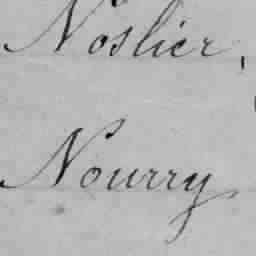 Noslier,
Nourry